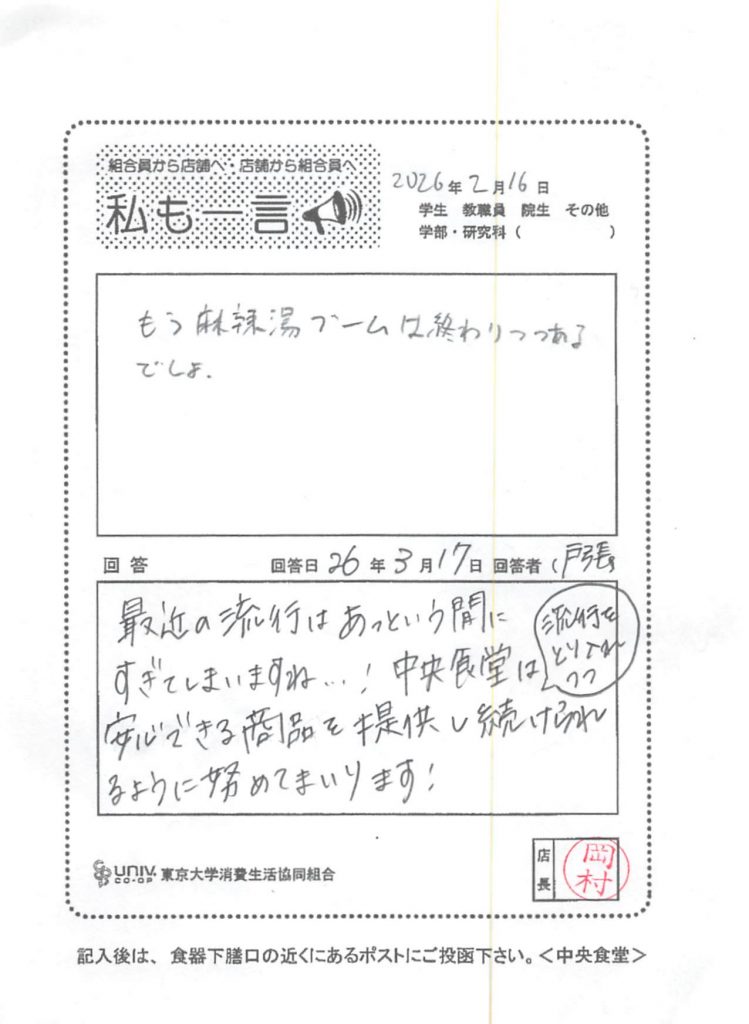 組合員から店舗へ・店舗から組合員へ
私も一言
2026年2月16日
学生 教職員 院生 その他
学部・研究科（ ）
もう麻辣湯ブームは終わりつつある
でしょ.
回答 回答日 26年3月17日 回答者（戸張
最近の流行はあっという間に
すぎてしまいますね…！中央食堂は
流行を
とり入れ
つつ
安心できる商品を提供し続けられ
るように努めてまいります！
UNIV. CO-OP 東京大学消費生活協同組合
店長 岡村
記入後は、食器下膳口の近くにあるポストにご投函下さい。＜中央食堂＞